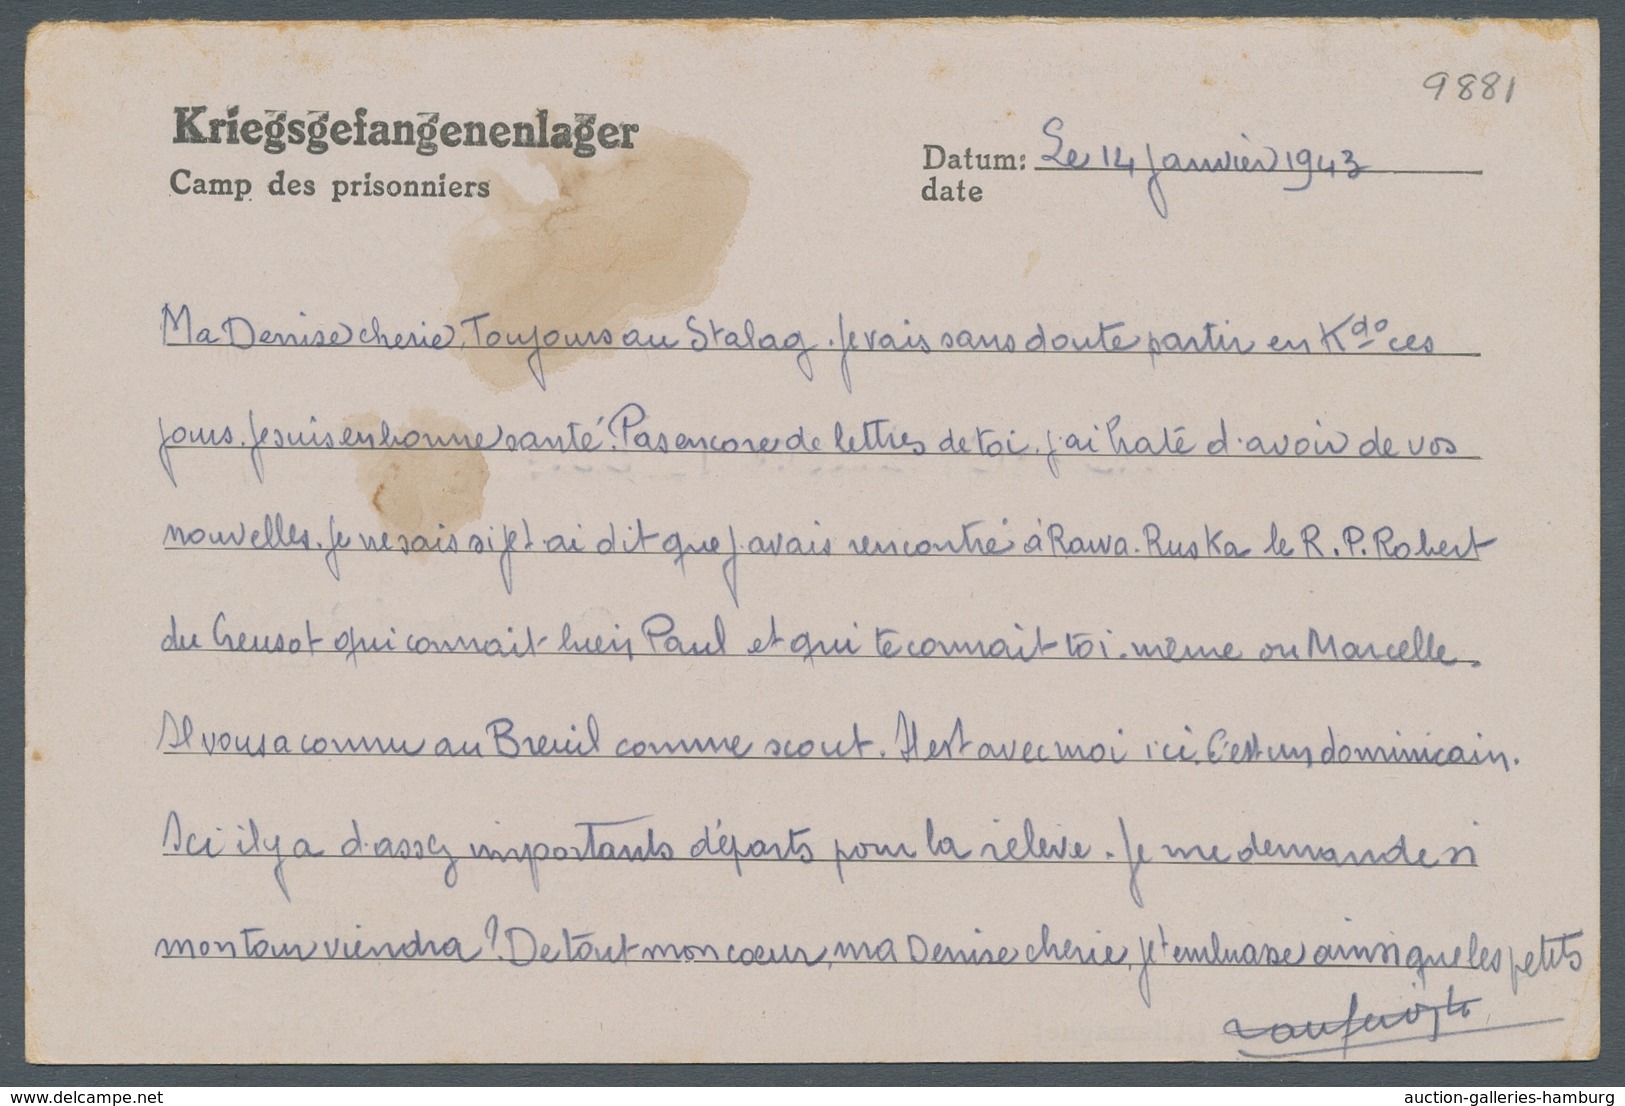 9881
Kriegsgefangenenlager
Camp des prisonniers
Datum: Le 14 Janvier 1943
date
Ma Denise cherie, Toujours au Stalag. Je vais sans doute partir en Kdo ces
jours. Je suis en bonne santé. Pas encore de lettres de toi. j'ai haté d'avoir de vos
nouvelles. Je ne sais si je t'ai dit que j'avais rencontré à Rawa-Ruska le R.P. Robert
du Creusot qui connait bien Paul et qui te connait toi-même ou Marcelle.
Il vous a connu au Breuil comme scout. Il est avec moi ici. C'est un dominicain.
Ici il y a d'assez importants départs pour la relève. Je me demande si
mon tour viendra? De tout mon coeur, ma Denise cherie, je t'embrasse ainsi que les petits
delcampe.net
auction-galleries-hamburg